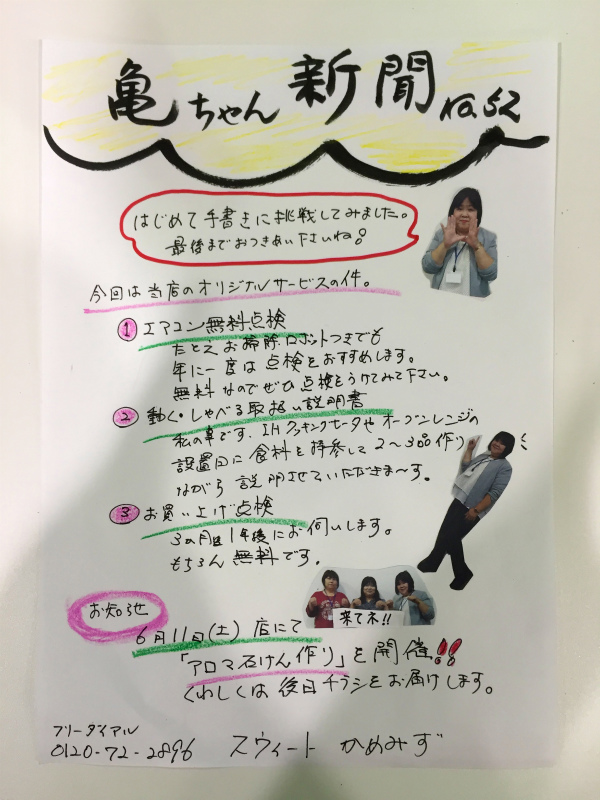 亀ちゃん新聞 No.52
はじめて手書きに挑戦してみました。
最後までおつきあい下さいね!
今回は当店のオリジナルサービスの件。
① エアコン無料点検
たとえお掃除ロボットつきでも
年に一度は点検をおすすめします。
無料なのでぜひ点検をうけてみて下さい。
② 動く・しゃべる取扱い説明書
私の事です。IHクッキングヒータやオーブンレンジの
設置日に食料を持参して2〜3品作り
ながら説明させていただきま〜す。
③ お買い上げ点検
3ヵ月と1年後にお伺いします。
もちろん無料です。
来て木!!
お知らせ
6月11日(土) 店にて
「アロマ石けん作り」を開催!!
くわしくは後日チラシをお届けします。
フリーダイアル
0120-72-2896 スウィート かめみず